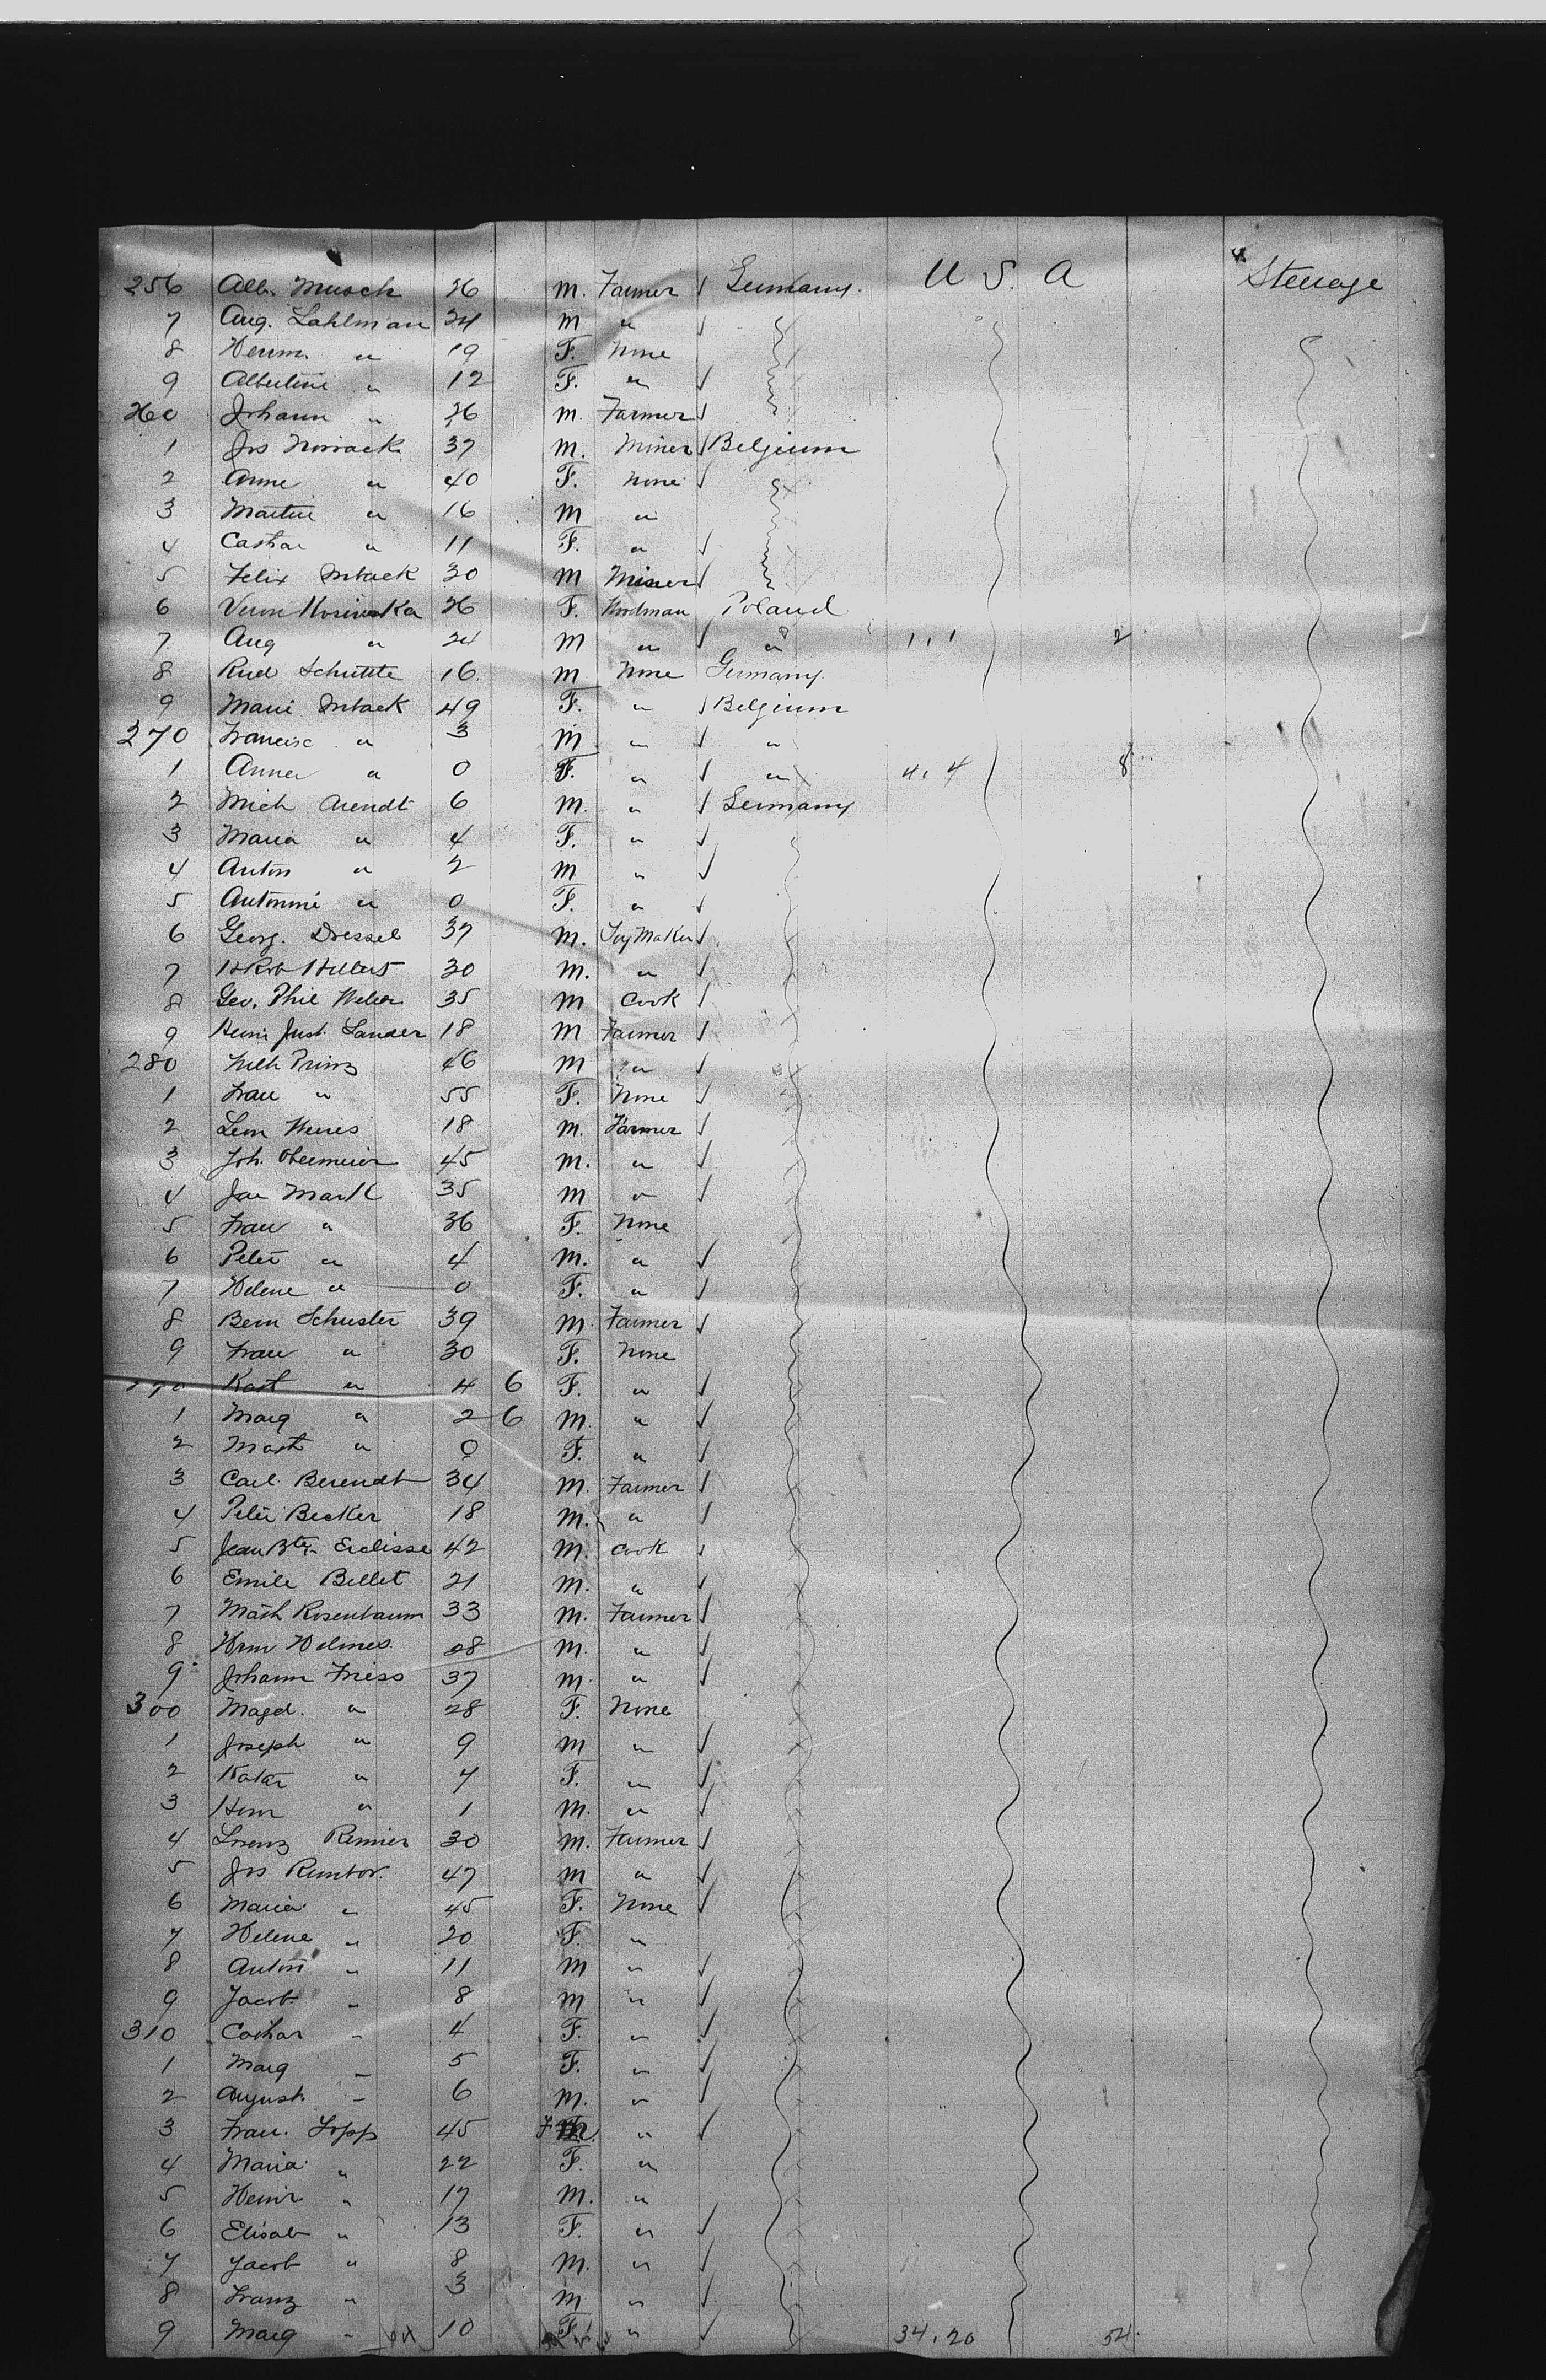 256 Alb. Musch 26 M. Farmer ✓ Germany. U S. A Steerage
7 Aug. Lahlman 24 M " ✓
8 Herm. " 19 F. None
9 Albertine " 12 F. " ✓
260 Johann " 26 M. Farmer ✓
1 Jos Nowack 37 M. Miner ✓ Belgium
2 Anne " 40 F. None ✓
3 Martin " 16 M "
4 " 11 F. " ✓
5 Felix 30 M Miner ✓
6 26 F. Workman Poland
7 Aug " 24 M " ✓ " 1, 1 2
8 Rud Schutte 16. M None Germany.
9 Marie 49 F. " ✓ Belgium
270 Francisc " 3 M " ✓ "
1 Anna " 0 F. " ✓ " 4, 4 8
2 Mich Arendt 6 M. " ✓ Germany
3 Maria " 4 F. " ✓
4 Anton " 2 M " ✓
5 Antonine " 0 F. " ✓
6 Georg. Dressel 37 M. Toy Maker ✓
7 30 M. " ✓
8 Geo. Phil Weber 35 M Cook ✓
9 Just. Sander 18 M Farmer ✓
280 Prinz 46 M " ✓
1 Frau " 55 F. None ✓
2 Leon 18 M. Farmer ✓
3 Joh. Obermeier 45 M. " ✓
4 Mark 35 M " ✓
5 Frau " 36 F. None
6 Peter " 4 M. " ✓
7 Helene " 0 F. " ✓
8 Bern Schuster 39 M. Farmer ✓
9 Frau " 30 F. None
290 " 4 6 F. " ✓
1 Marg " 2 6 M. " ✓
2 " 0 F. " ✓
3 Carl. Berendt 34 M. Farmer ✓
4 Peter Becker 18 M. " ✓
5 Jean Bte. Eclisse 42 M. Cook ✓
6 Emile Billet 21 M. " ✓
7 Math Rosenbaum 33 M. Farmer ✓
8 Hrm Helmes. 28 M. " ✓
9 Johann Friess 37 M. " ✓
300 Magd. " 28 F. None
1 Joseph " 9 M " ✓
2 Kathr " 7 F. " ✓
3 " 1 M. " ✓
4 Lorenz Renier 30 M. Farmer ✓
5 Jos 47 M " ✓
6 Maria " 45 F. None ✓
7 Helene " 20 F. "
8 Anton " 11 M " ✓
9 Jacob " 8 M " ✓
310 " 4 F. " ✓
1 Marg " 5 F. " ✓
2 August. " 6 M. " ✓
3 Frau. Topp 45 F " ✓
4 Maria " 22 F. "
5 Heinr " 17 M. "
6 Elisab " 13 F. " ✓
7 Jacob " 8 M. " ✓
8 Franz " 3 M " ✓
9 Marg " 10 F. " ✓ 34, 20 54